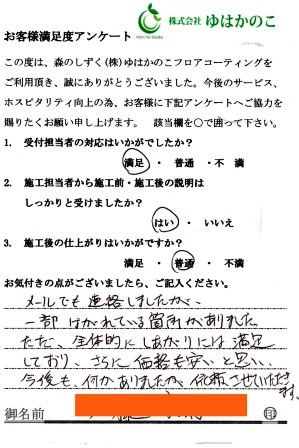 株式会社 ゆはかのこ
お客様満足度アンケート
この度は、森のしずく(株)ゆはかのこフロアコーティングを
ご利用頂き、誠にありがとうございました。今後のサービス、
ホスピタリティ向上の為、お客様に下記アンケートへご協力を
賜りたくお願い申し上げます。 該当欄を〇で囲って下さい。
1. 受付担当者の対応はいかがでしたか?
満足 ・ 普通 ・不 満
2. 施工担当者から施工前・施工後の説明は
しっかりと受けましたか?
はい ・ いいえ
3. 施工後の仕上がりはいかがですか?
満足 ・ 普通 ・不 満
お気付きの点がございましたら、ご記入ください。
メールでも連絡しましたが、
一部 はがれている箇所がありました
ただ、全体的にしあがりには満足
しており、さらに価格も安いと思い、
今後も、何かありましたら、依頼させていただきます。
御名前
印